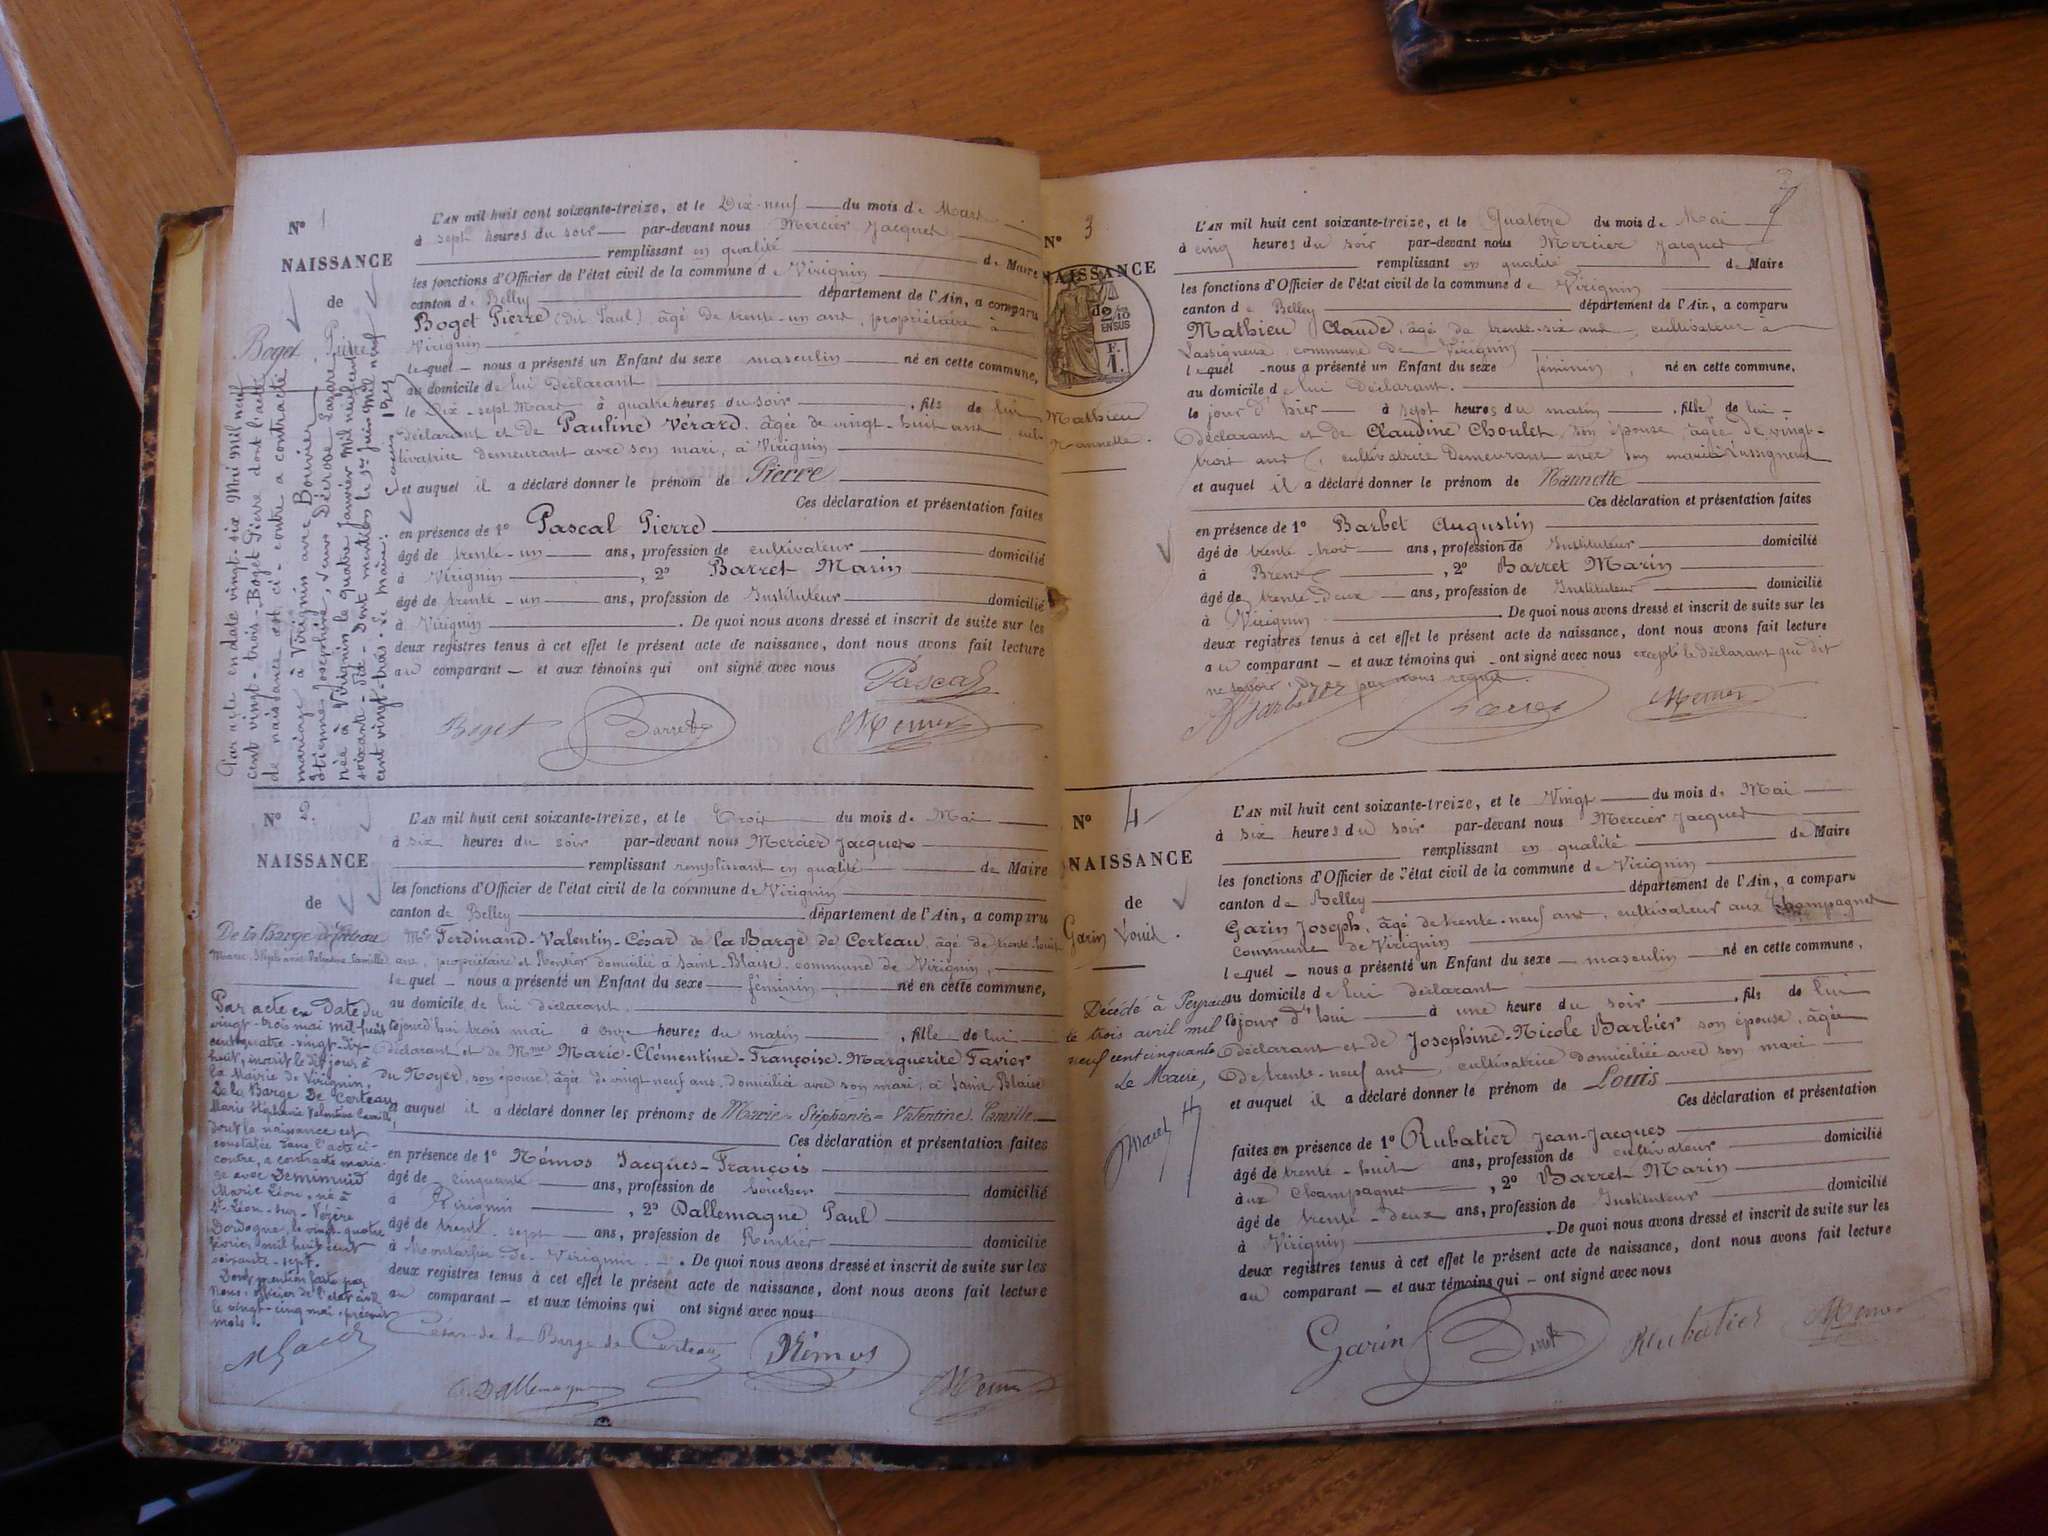 N° 1
NAISSANCE
de
Boget Pierre
L'AN mil huit cent soixante-treize, et le Dix-neuf du mois de Mars
à sept heures du soir par-devant nous Mercier Jacques
remplissant en qualité de Maire
les fonctions d'Officier de l'état civil de la commune de Virignin
canton de Belley département de l'Ain, a comparu
Boget Pierre (dit Paul), âgé de trente-un ans, propriétaire à
Virignin
lequel nous a présenté un Enfant du sexe masculin né en cette commune,
au domicile de lui déclarant
le Dix-sept Mars à quatre heures du soir, fils de lui
déclarant et de Pauline Vérard, âgée de vingt-huit ans, cul-
tivatrice demeurant avec son mari, à Virignin
et auquel il a déclaré donner le prénom de Pierre
Ces déclaration et présentation faites
en présence de 1° Pascal Pierre
âgé de trente-un ans, profession de cultivateur domicilié
à Virignin, 2° Barret Marin
âgé de trente-un ans, profession de Instituteur domicilié
à Virignin. De quoi nous avons dressé et inscrit de suite sur les
deux registres tenus à cet effet le présent acte de naissance, dont nous avons fait lecture
au comparant et aux témoins qui ont signé avec nous
Pascal
Boget Barret Mercier
Par acte en date vingt-six Mai mil neuf
cent vingt-trois, Boget Pierre dont l'acte
de naissance est ci-contre a contracté
mariage à Virignin avec Bouvier
Etiennes Josephine, veuve Dérode Lazare
née à Virignin le quatre Janvier mil huit cent
soixante- Dont mention le 1er Juin mil neuf
cent vingt-trois. Le Maire:
N° 2
NAISSANCE
de
De la Barge de Certeau
Marie Stéphanie Valentine Camille
L'AN mil huit cent soixante-treize, et le Trois du mois de Mai
à six heures du soir par-devant nous Mercier Jacques
remplissant remplissant en qualité de Maire
les fonctions d'Officier de l'état civil de la commune de Virignin
canton de Belley département de l'Ain, a comparu
Mr Ferdinand-Valentin-César de la Barge de Certeau, âgé de trente-huit
ans, propriétaire et Rentier domicilié à Saint-Blaise, commune de Virignin,
lequel nous a présenté un Enfant du sexe féminin, né en cette commune,
au domicile de lui déclarant.
lejourd'hui trois mai à onze heures du matin, fille de lui
déclarant et de Mme Marie-Clémentine-Françoise-Marguerite Favier
du Noyer, son épouse, âgée de vingt-neuf ans, domiciliée avec son mari, à Saint Blaise
et auquel il a déclaré donner les prénoms de Marie-Stéphanie-Valentine, Camille
Ces déclaration et présentation faites
en présence de 1° Némos Jacques-François
âgé de cinquante ans, profession de boucher domicilié
à Virignin, 2° Dallemagne Paul
âgé de trente-sept ans, profession de Rentier domicilié
à de Virignin. De quoi nous avons dressé et inscrit de suite sur les
deux registres tenus à cet effet le présent acte de naissance, dont nous avons fait lecture
au comparant et aux témoins qui ont signé avec nous
César de la Barge de Certeau Némos
Dallemagne Mercier
Par acte en Date du
vingt-trois mai mil-huit
cent quatre-vingt-dix-
huit, inscrit le dit jour à
la Mairie de Virignin,
De la Barge De Certeau
Marie Stéphanie Valentine Camille,
dont la naissance est
constatée dans l'acte ci-
contre, a contracté maria-
ge avec
Marie Léon, né à
St-Léon-sur-Vézère
Dordogne, le vingt-quatre
février mil huit cent
soixante-sept.
Dont mention faite par
Nous, officier de l'état civil
le vingt-cinq mai, présent
mois.
N° 3
NAISSANCE
de
2/10
EN SUS
F.
1.
Mathieu
Nannette.
L'AN mil huit cent soixante-treize, et le Quatorze du mois de Mai
à cinq heures du soir par-devant nous Mercier Jacques
remplissant en qualité de Maire
les fonctions d'Officier de l'état civil de la commune de Virignin
canton de Belley département de l'Ain, a comparu
Mathieu Claude, âgé de trente-six ans, cultivateur à
Lassigneux commune de Virignin
lequel nous a présenté un Enfant du sexe féminin, né en cette commune,
au domicile de lui déclarant.
le jour d'hier à sept heures du matin, fille de lui
déclarant et de Claudine Choulet, son épouse, âgée de vingt-
trois ans, cultivatrice demeurant avec son mari à Lassigneux
et auquel il a déclaré donner le prénom de Nannette
Ces déclaration et présentation faites
en présence de 1° Barbet Augustin
âgé de trente-trois ans, profession de Instituteur domicilié
à Brens, 2° Barret Marin
âgé de trente-deux ans, profession de Instituteur domicilié
à Virignin. De quoi nous avons dressé et inscrit de suite sur les
deux registres tenus à cet effet le présent acte de naissance, dont nous avons fait lecture
au comparant et aux témoins qui ont signé avec nous excepté le déclarant qui dit
ne savoir, de ce par nous requis.
Barbet Barret Mercier
N° 4
NAISSANCE
de
Garin Louis.
L'AN mil huit cent soixante-treize, et le Vingt du mois de Mai
à six heures du soir par-devant nous Mercier Jacques
remplissant en qualité de Maire
les fonctions d'Officier de l'état civil de la commune de Virignin
canton de Belley département de l'Ain, a comparu
Garin Joseph, âgé de trente-neuf ans, cultivateur aux Champagnes
commune de Virignin
lequel nous a présenté un Enfant du sexe masculin né en cette commune,
au domicile de lui déclarant
lejour d'hui à une heure du soir, fils de lui
déclarant et de Josephine-Nicole Barbier son épouse, âgée
de trente-neuf ans, cultivatrice domiciliée avec son mari
et auquel il a déclaré donner le prénom de Louis
Ces déclaration et présentation
faites en présence de 1° Rubatier Jean-Jacques
âgé de trente-huit ans, profession de cultivateur domicilié
aux Champagnes, 2° Barret Marin
âgé de trente-deux ans, profession de Instituteur domicilié
à Virignin. De quoi nous avons dressé et inscrit de suite sur les
deux registres tenus à cet effet le présent acte de naissance, dont nous avons fait lecture
au comparant et aux témoins qui ont signé avec nous
Garin Barret Rubatier Mercier
Décédé à Peyrieu
le trois avril mil
neuf cent cinquante
Le Maire,